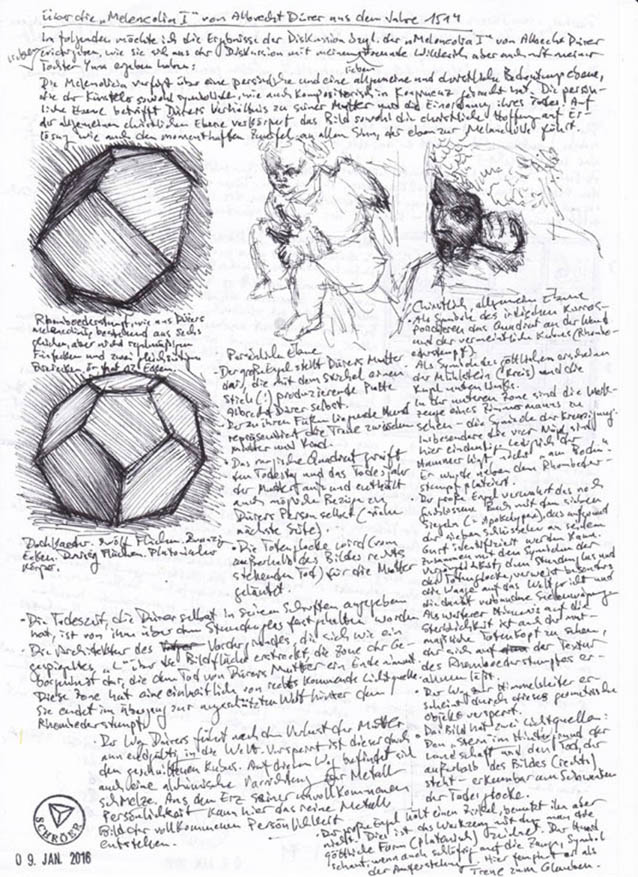 Über die „Melencolia I" von Albrecht Dürer aus dem Jahre 1514
Im folgenden möchte ich die Ergebnisse der Diskussion bezgl. der „Melencolia I" von Albrecht Dürer
wie sie sich aus der Diskussion mit meinem Freunde aber auch mit meiner
lieben
Tochter ergeben haben:
Die Melencolia verfügt über eine persönliche und eine allgemeine und christliche Bedeutungsebene,
wie der Künstler sowohl symbolisch, wie auch kompositorisch in Kongruenz gebracht hat. Die persön-
liche Ebene betrifft Dürers Verhältnis zu seiner Mutter und die Einordnung ihres Todes. Auf
der allgemeinen christlichen Ebene verkörpert das Bild sowohl die christliche Hoffnung auf Er-
lösung wie auch den momenthaften Zweifel an allem Sinn, der eben zur Melancholie führt.
Rhomboederstumpf, wie aus Dürers
Melencolia, bestehend aus sechs
gleichen, aber nicht regelmäßigen
Fünfecken und zwei gleichseitigen
Dreiecken. Er hat 12 Ecken.
Dodekaeder. Zwölf Flächen. Zwanzig
Ecken. Platonischer
Körper.
Persönliche Ebene
• Der große Engel stellt Dürers Mutter
dar, die mit dem Stichel einen
Stich (!) produzierende Putte
Albrecht Dürer selbst.
• Der zu ihren Füßen liegende Hund
repräsentiert die Treue zwischen
Mutter und Kind.
• Das magische Quadrat greift
den Todestag und das Todesjahr
der Mutter auf und enthält
auch mögliche Bezüge zu
Dürers Person selbst (siehe
nächste Seite).
• Die Totenglocke wird (vom
außerhalb des Bildes rechts
stehenden Tod) für die Mutter
geläutet.
• Die Todeszeit, die Dürer selbst in seinen Schriften angegeben
hat, ist von ihm über dem Stundenglas festgehalten worden.
• Die Architektur des Vordergrundes, die sich wie ein
gespiegeltes „L" über die Bildfläche erstreckt, die Zone der Ge-
die dem Tod von Dürers Mutter ein Ende nimmt.
Diese Zone hat eine einheitliche von rechts kommende Lichtquelle.
Sie endet im Übergang zur Welt hinter dem
Rhomboederstumpf.
• Der Weg Dürers führt nach dem Verlust der Mutter
nun endgültig in die Welt. Versperrt ist dieser durch
den Kubus. Auf diesem Weg befindet sich
auch eine alchimische Vorrichtung zur Metall-
schmelze. Aus dem Erz seiner unvollkommenen
Persönlichkeit kann hier das reine Metall
Bild der vollkommenen Persönlichkeit
entstehen.
Christlich allgemeine Ebene
• Als Symbole des irdischen Kosmos
das Quadrat an der Wand
und der vermeintliche Kubus (Rhombo-
ederstumpf).
• Als Symbole des göttlichen erscheinen
der Mühlstein (Kreis) und die
Kugel unten links.
• In der unteren Zone sind die Werk-
zeuge eines Zimmermanns zu
sehen - die Symbole der Kreuzigung.
Insbesondere die vier Nägel sind
hier eindeutig. Lediglich der
Hammer liegt nicht „am Boden".
Er wurde neben dem Rhomboeder-
stumpf platziert.
• Der große Engel verwahrt das noch
geschlossene Buch mit den sieben
Siegeln (= Apokalypse), das aufgrund
der sieben Schlüssel an seinem
Gurt identifiziert werden kann.
Zusammen mit den Symbolen der
dem Stundenglas und
der Totenglocke, verweist
die Waage auf das Weltgericht und
die damit verbundene Seelenwägung.
• Als weiterer Hinweis auf die
Sterblichkeit ist auch der
Totenkopf zu sehen,
der sich auf der Textur
des Rhomboederstumpfes er-
ahnen lässt.
• Der Weg zur Himmelsleiter er-
scheint durch dieses geometrische
Objekt versperrt.
• Das Bild hat zwei Lichtquellen:
Den „Stern" im Hintergrund der
Landschaft und den Tod, der
außerhalb des Bildes (rechts)
steht - erkennbar am Schwenken
der Totenglocke.
• Der große Engel hält einen Zirkel, benutzt ihn aber
nicht. Dies ist das Werkzeug mit dem man eine
göttliche Form (platonisch) zeichnet. Der Hund
scheint, wenn auch schläfrig auf die Zange, Symbol
der Auferstehung. Hier fungiert er als
Treue zum Glauben.
SCHRÖER
09. JAN. 2016